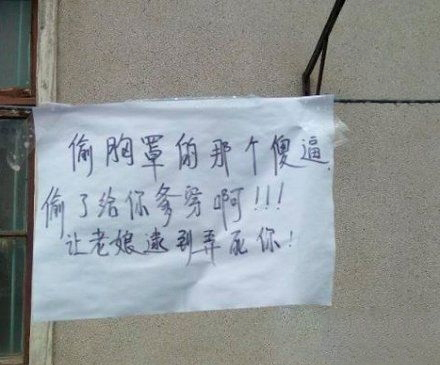 偷胸罩的那个傻逼
偷了给你爹穿啊!!!
让老娘逮到弄死你!